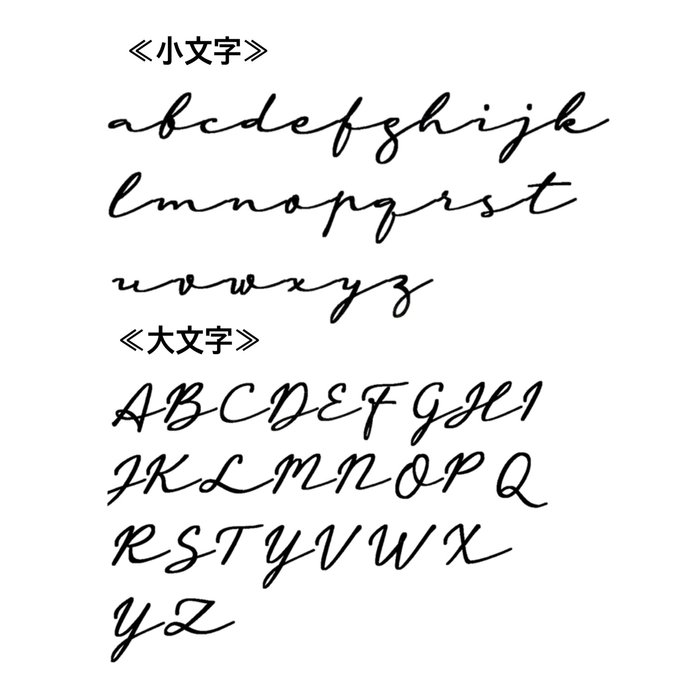 ≪小文字≫
abcdefghijk
lmnopqrst
uvwxyz
≪大文字≫
ABCDEFGHI
JKLMNOPQ
RSTYVWX
YZ